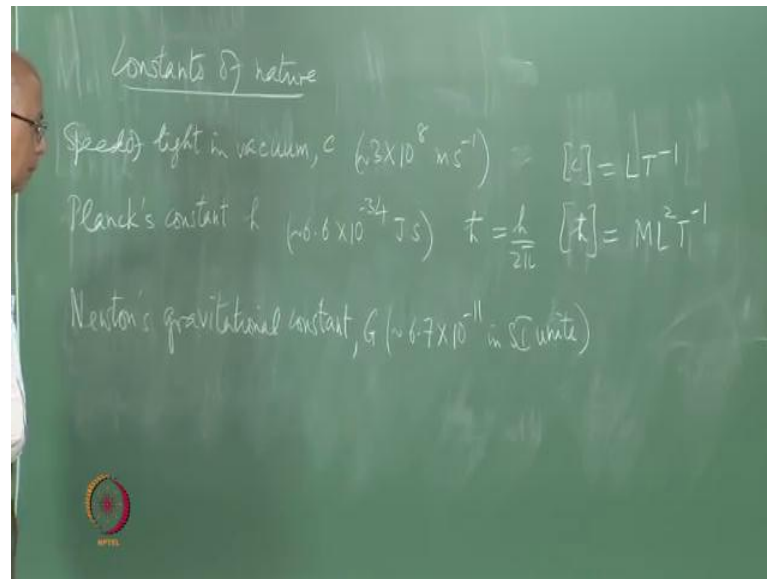 Constants of nature
Speed of light in vacuum, c (~3×10⁸ ms⁻¹) [c] = LT⁻¹
Planck's constant h (~6.6×10⁻³⁴ Js) ħ = h/2π [ħ] = ML²T⁻¹
Newton's gravitational constant, G (~6.7×10⁻¹¹ in SI units)
NPTEL